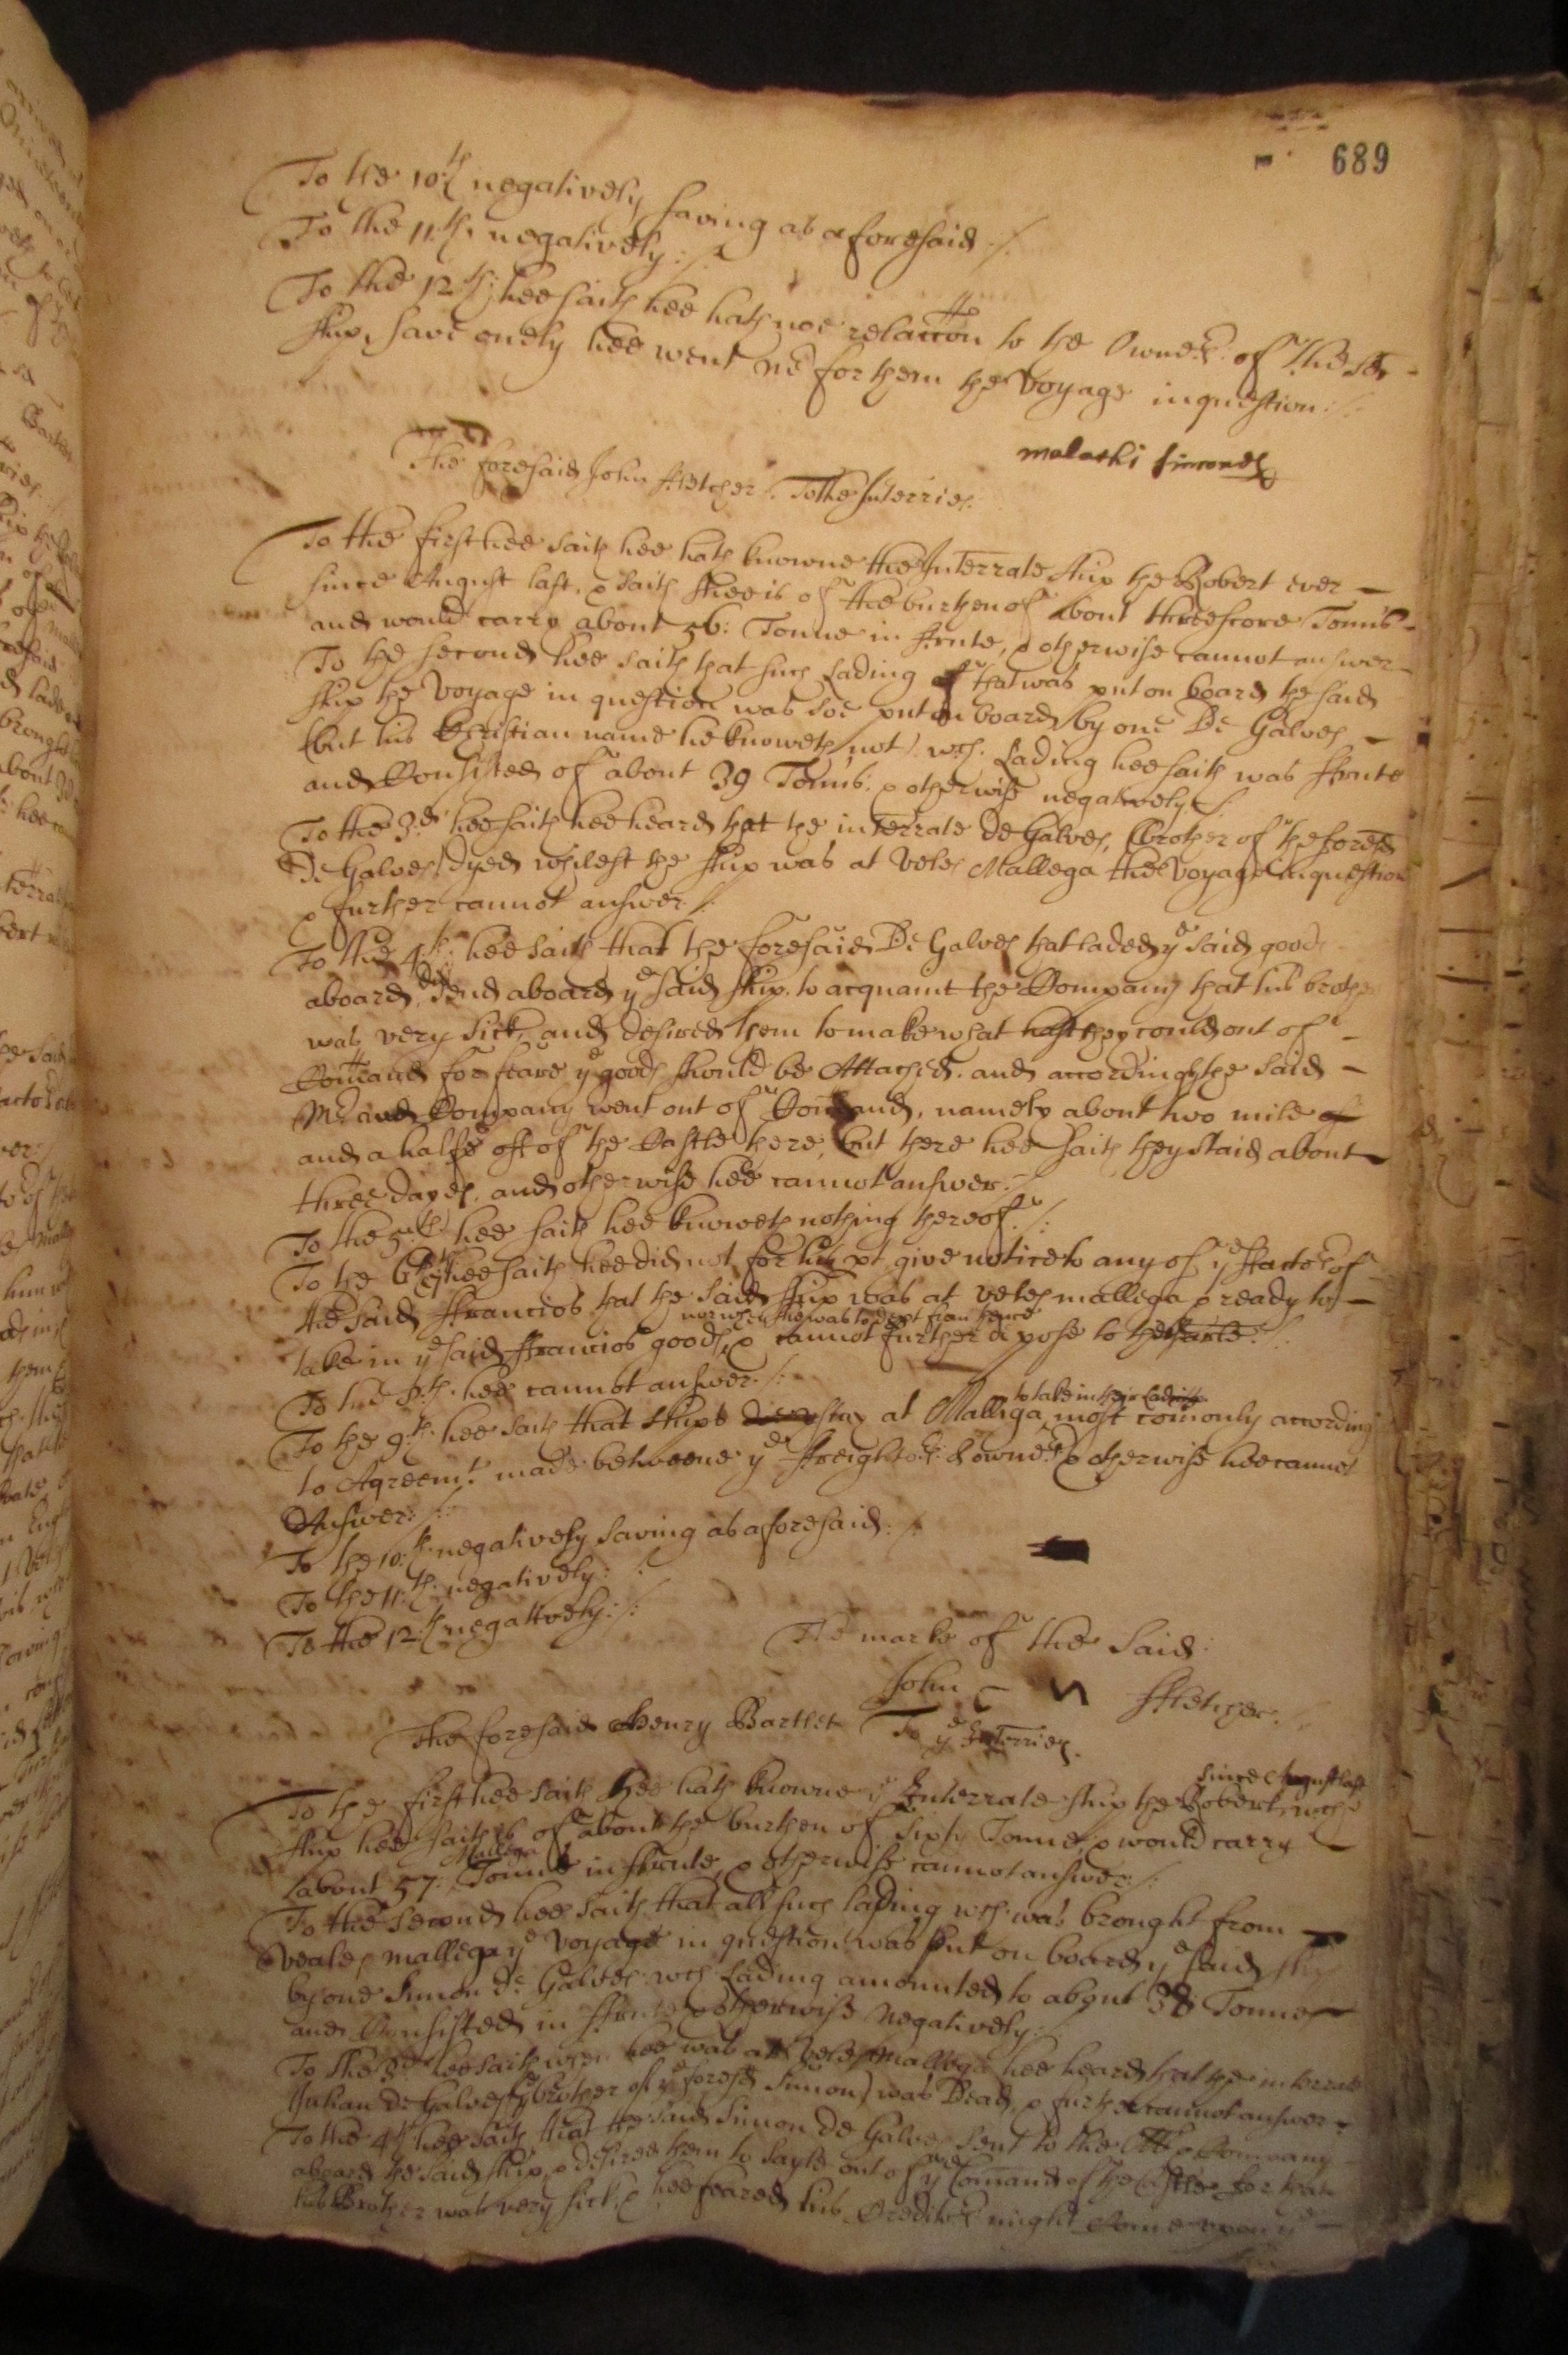 689
To the 10th negatively saving as aforesaid ./.
To the 11th. negatively: ./.
To the 12th: hee saith hee hath noe relaccon to the Owners: of the sd
shipp, save onely hee went Mr for them the Voyage in question: /:
malachi simonds
The foresaid John Fletcher /. To the Interries:
To the first hee saith hee hath knowne the Interrate shipp the Robert ever
since August last, & saith shee is of the burthen of about threescore Tonns
and would carry about 56: Tonne in fruite, & otherwise cannot answer
To the second hee saith that such Lading of that was put on board the said
shipp the Voyage in question was soe put on board by one De Galves
(but his Christian name he knoweth not) wch. Lading hee saith was fruite
and Consisted of about 39 Tonns: & otherwise negatively ./.
To the 3d hee saith hee heard that the interrate de Galves, (brother of the foresd
De Galves) dyed whilest the shipp was at Veles Mallega the Voyage in question
& further cannot answer ./:
To the 4th: hee saith that the foresaid De Galves that laded ye said goods
aboard, did send aboard ye said shipp. to acquaint the Company that his brother
was very sick, and desired them to make what hast they could out of
Comand for feare ye goods should be Attached. and accordingly the said
Mr and Company went out of Comand, namely about two mile of
and a halfe off of the Castle there, but there hee saith they staid about
three dayes. and otherwise hee cannot answer: /
To the 5th hee saith hee knoweth nothing thereof. /:
To the 6th hee saith hee did not for his pt give notice to any of ye Factors of
the said Francios that the said shipp was at Veles mallega & ready to
take in ye said Francios goods, nor when shee was to dept from thence & cannot further depose to the
To the 8th. hee cannot answer ./:
To the 9th. hee saith that shipps stay at Mallega to take in their Ladings most comonly according
to Agreemt. made betweene ye Freighters: & owners & otherwise hee cannot
Answer: /:
To the 10:th negatively saving as aforesaid: /.
To the 11:th. negatively: /
To the 12th negatively: /:
The marke of the Said:
John Fletcher. /.
The foresaid Henry Bartlet To ye Interries.
To the first hee saith hee hath knowne ye Interrate shipp the Robert since August last, wch
shipp hee saith is of about the burthen of Sixty Tonne, & would carry
about 57: Tonne in Mallega fruite, & otherwise cannot answer: /:
To the second hee saith that all such lading wch. was brought from
Veales mallega ye Voyage in question was put on board ye said shipp
by one Simon de Galves wch Lading amounted to about 38 Tonnes
and Consisted in fruite & otherwise Negatively: /
To the 3d hee saith when hee was att Veles Mallega hee heard that the interrate
Julian de Galves (ye brother of ye foresd Simon) was Dead, & further cannot answer
To the 4th hee saith that the said Simon De Galves sent to the Mr & Company
aboard the said shipp, & desired them to sayle out of ye Comand of the Castle for that
his Brother was very sick, & hee feared his Creditrs might come upon ye